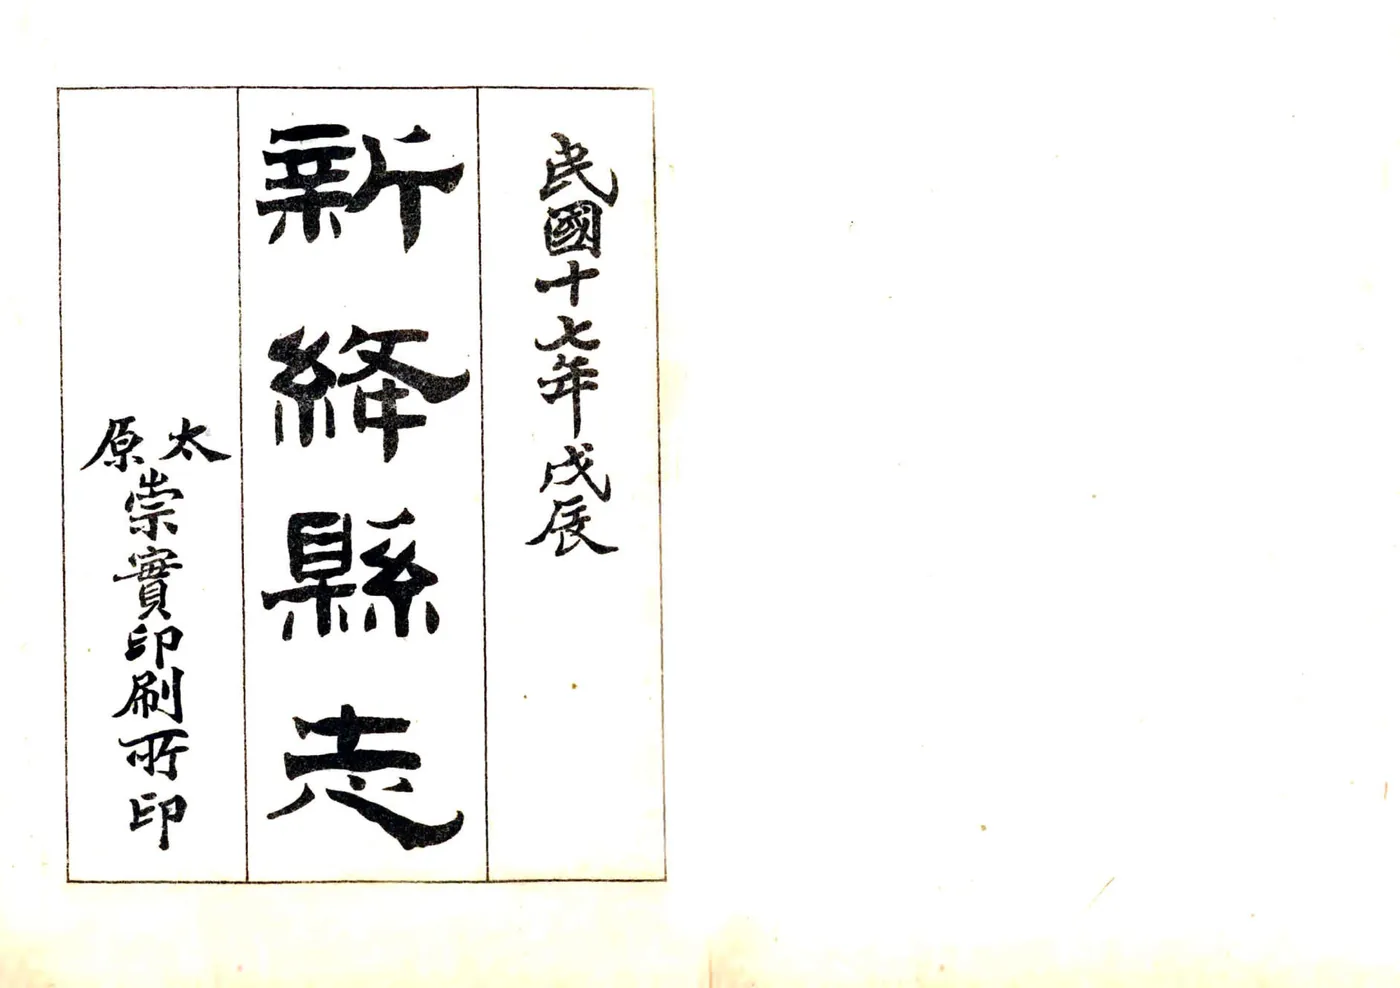 民國十七年戊辰
新絳縣志
太原崇實印刷所印